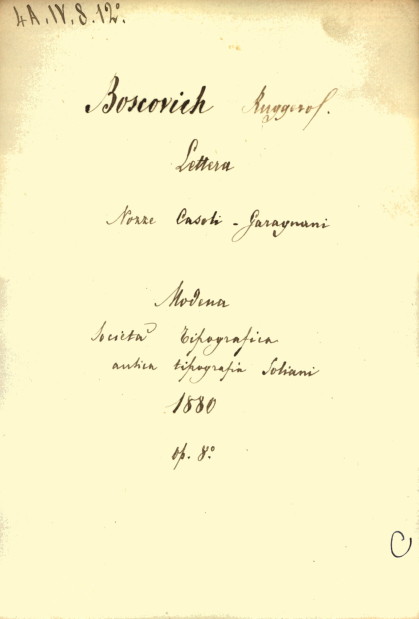 4A.IV.8.12°
Boscovich Ruggero G.
Lettera
Nozze Casoli - Garagnani
Modena
Società Tipografica
antica tipografia Soliani
1880
op. 8.°
C